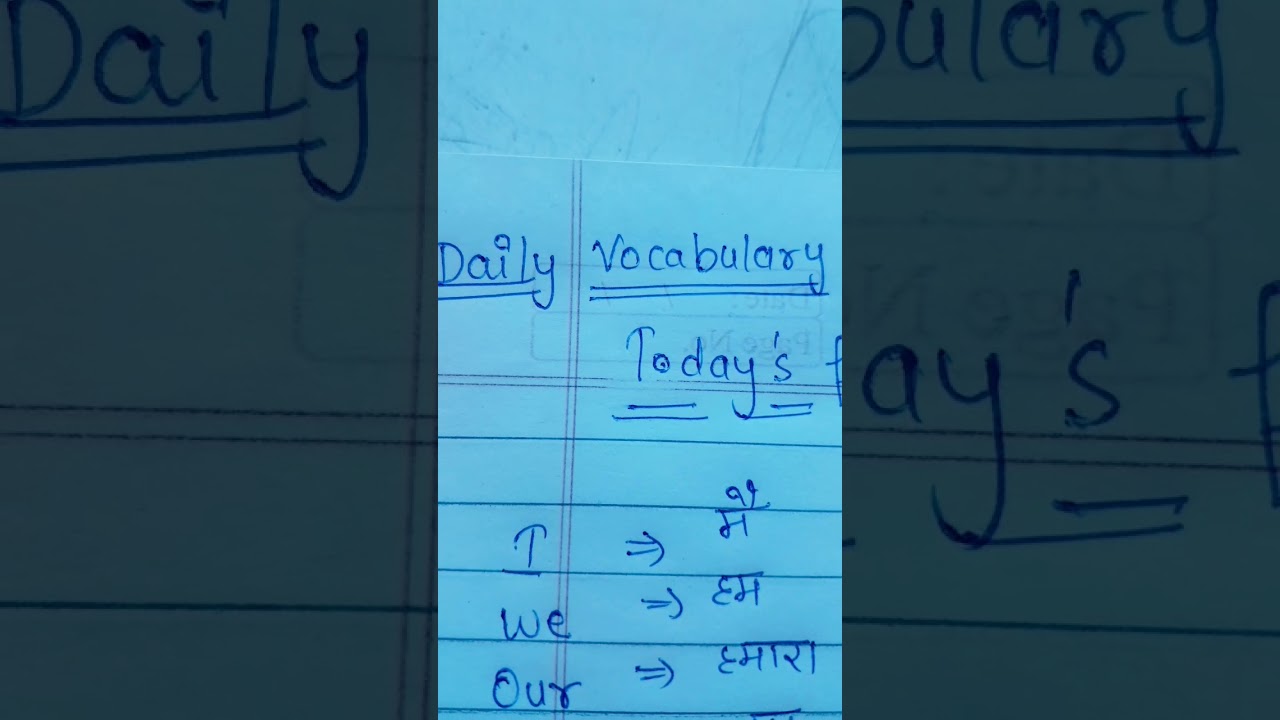 Daily Vocabulary
Today's
I ⇒ मैं
We ⇒ हम
Our ⇒ हमारा